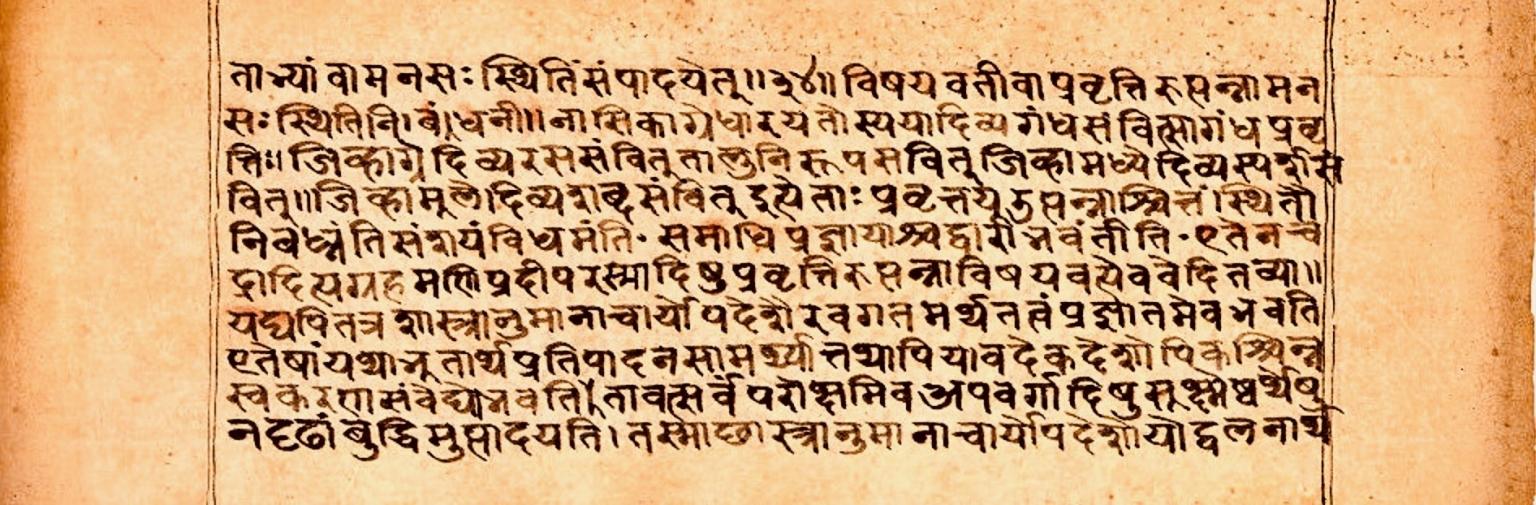 ताभ्यां वा मनसः स्थितिं संपादयेत्॥३४॥ विषयवती वा प्रवृत्तिरुत्पन्ना मन
सः स्थितिनिबंधनी॥ नासिकाग्रे धारयतोस्य या दिव्यगंधसंवित्सा गंधप्रवृ
त्तिः॥ जिव्हाग्रे दिव्यरससंवित् तालुनि रूपसंवित् जिव्हामध्ये दिव्यस्पर्शसं
वित्॥ जिव्हामुले दिव्यशब्दसंवित् इत्येताः प्रवृत्तय उत्पन्नाश्चित्तं स्थितौ
निबध्नंति संशयं विधमंति· समाधिप्रज्ञायाश्च द्वारी भवंतीति· एतेन चं
द्रादित्यग्रहमणिप्रदीपरस्मादिषु प्रवृत्तिरुत्पन्ना विषयवत्येव वेदितव्या॥
यद्यपि तत्र शास्त्रानुमानाचार्योपदेशैरवगतमर्थतत्वं प्रज्ञातमेव भवति
एतेषां यथाभुतार्थप्रतिपादनसामर्थ्यात् तथापि यावदेकदेशोपि कश्चिन्न
स्वकरणसंवेद्यो भवति। तावत्सर्वं परोक्षमिव अपवर्गादिषु सूक्ष्मेष्वर्थेषु
न दृढां बुद्धिमुत्पादयति। तस्माछास्त्रानुमानाचार्योपदेशोपोद्वलनार्थ